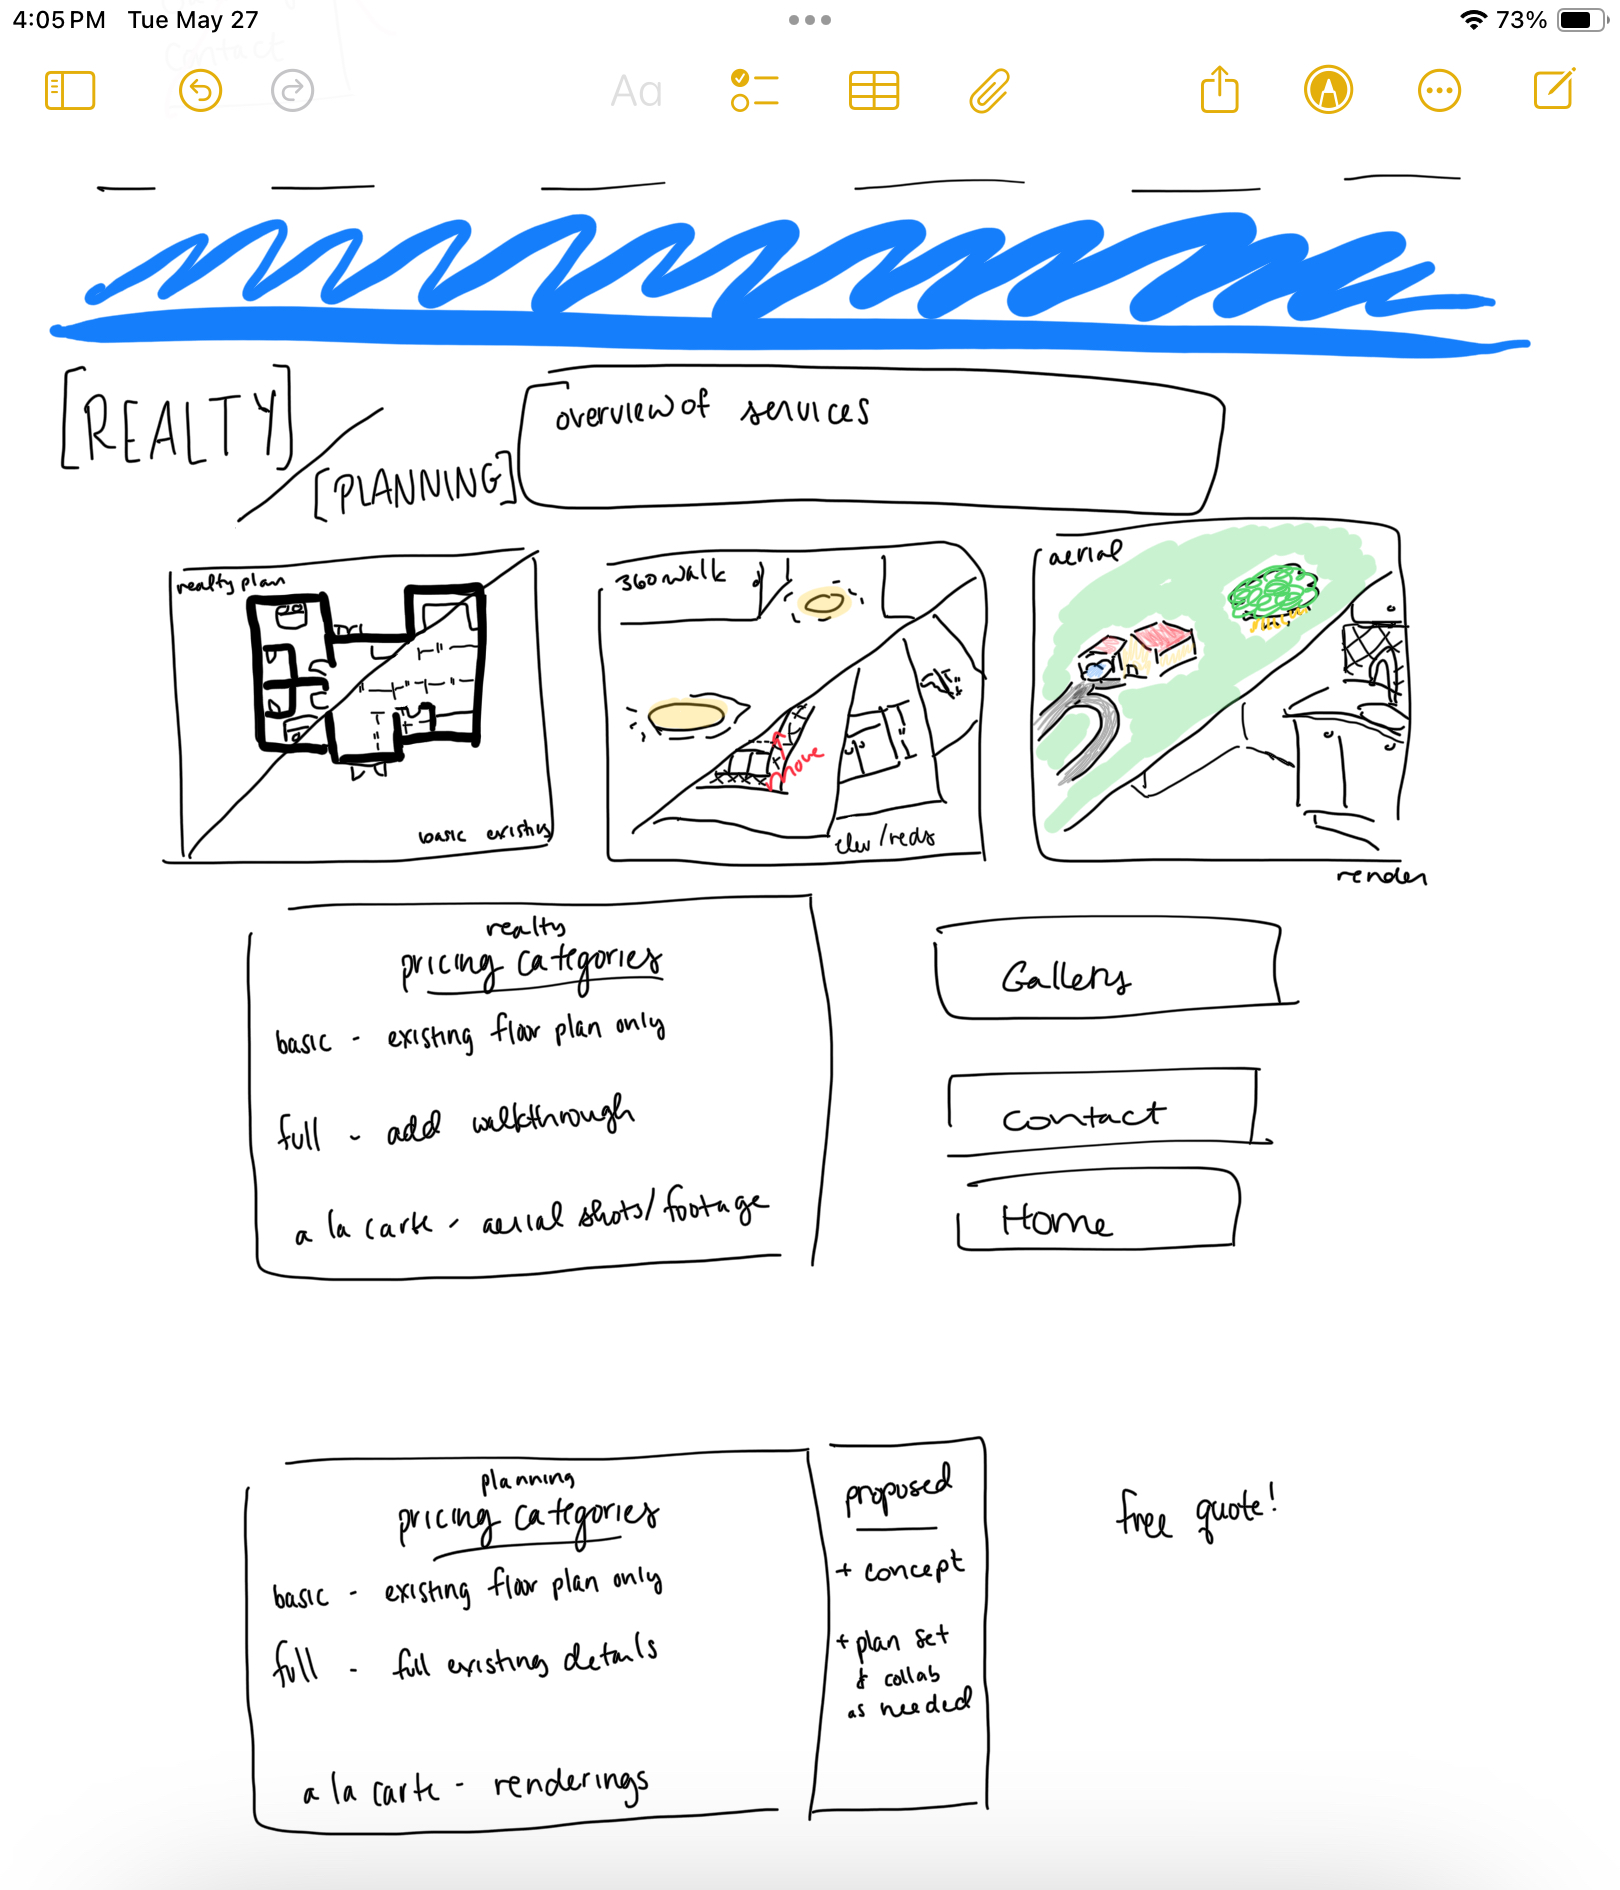 4:05 PM Tue May 27
73%
contact
Aa
[REALTY]
[PLANNING]
overview of services
realty plan
basic existing
360 walk
move
elev/reds
aerial
render
realty
pricing categories
basic - existing floor plan only
full - add walkthrough
a la carte - aerial shots/footage
Gallery
Contact
Home
planning
pricing categories
basic - existing floor plan only
full - full existing details
a la carte - renderings
proposed
+ concept
+ plan set
& collab
as needed
free quote!